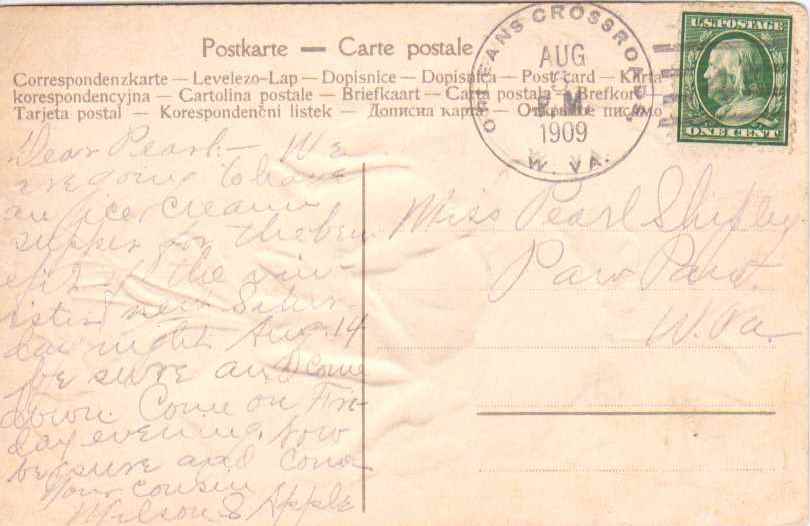 Postkarte — Carte postale
Correspondenzkarte — Levelezo-Lap — Dopisnice — Dopisnica — Post card — Karta
korespondencyjna — Cartolina postale — Briefkaart — Carta postala — Brefkort
Tarjeta postal — Korespondenční listek — Дописна карта — Открытое письмо
ORLEANS CROSSROADS.
AUG
P.M.
1909
W. VA.
U.S. POSTAGE
ONE CENT
Dear Pearl — We
are going to have
an ice cream
supper for the ben
efit of the min-
ister next Satur-
day night Aug. 14
be sure and come
down. Come on Fri-
day evening. Now
be sure and come
Your cousin
Wilson S Apple
Miss Pearl Shipley
Paw Paw.
W. Va.